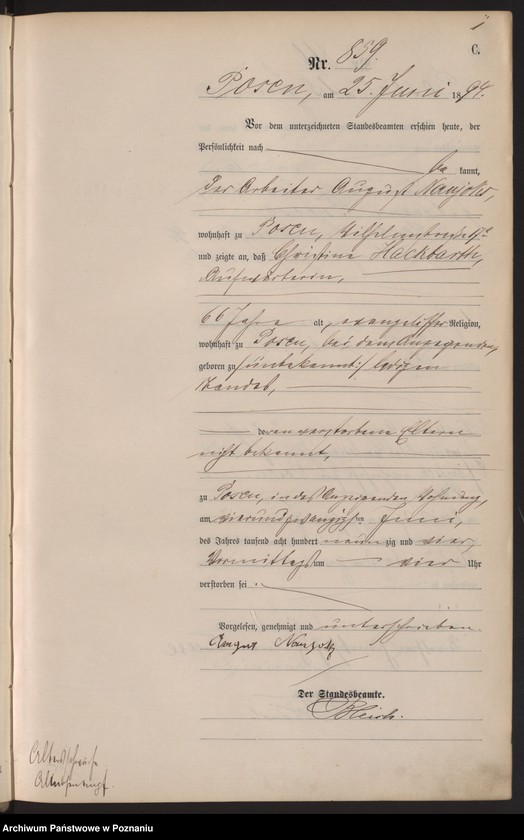 C.
Nr. 859.
Posen, am 25. Juni 1894.
Vor dem unterzeichneten Standesbeamten erschien heute, der
Persönlichkeit nach
be kannt,
der Arbeiter August
wohnhaft zu Posen,
und zeigte an, daß Christine Hackbarth,
Aufwärterin,
66 Jahre alt, evangelischer Religion,
wohnhaft zu Posen, bei dem Anzeigenden,
geboren zu /:unbekannt:/ ledigen
Standes,
deren verstorbene Eltern
nicht bekannt,
zu Posen, in des Anzeigenden Wohnung,
am vierundzwanzigsten Juni,
des Jahres tausend acht hundert neunzig und vier,
Vormittags um vier Uhr
verstorben sei.
Vorgelesen, genehmigt und unterschrieben.
August
Der Standesbeamte.
Altersschwäche
Archiwum Państwowe w Poznaniu